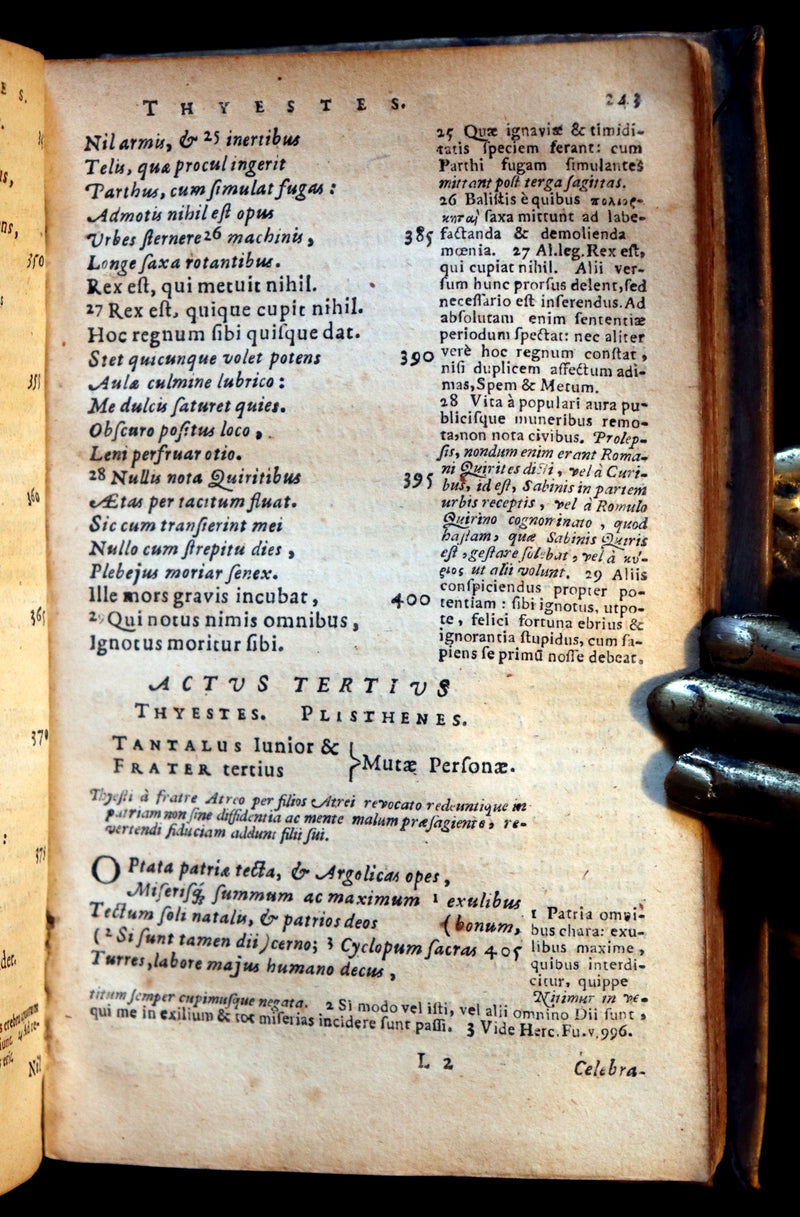 THYESTES. 243
Nil armis, & 25 inertibus
Telis, quæ procul ingerit
Parthus, cum simulat fugas :
Admotis nihil est opus
Urbes sternere 26 machinis, 385
Longe saxa rotantibus.
Rex est, qui metuit nihil.
27 Rex est, quique cupit nihil.
Hoc regnum sibi quisque dat.
Stet quicunque volet potens 390
Aulæ culmine lubrico :
Me dulcis saturet quies.
Obscuro positus loco,
Leni perfruar otio.
28 Nullis nota Quiritibus 395
Ætas per tacitum fluat.
Sic cum transierint mei
Nullo cum strepitu dies,
Plebejus moriar senex.
Ille mors gravis incubat, 400
29 Qui notus nimis omnibus,
Ignotus moritur sibi.
25 Quæ ignaviæ & timidi-
tatis speciem ferant: cum
Parthi fugam simulantes
mittant post terga sagittas.
26 Balistis è quibus πολιορ-
κηταὶ saxa mittunt ad labe-
factanda & demolienda
mœnia. 27 Al. leg. Rex est,
qui cupiat nihil. Alii ver-
sum hunc prorsus delent, sed
necessario est inserendus. Ad
absolutam enim sententiæ
periodum spectat: nec aliter
verè hoc regnum constat,
nisi duplicem affectum adi-
mas, Spem & Metum.
28 Vita à populari aura pu-
blicisque muneribus remo-
ta, non nota civibus. Prolep-
sis, nondum enim erant Roma-
ni Quirites dicti, vel à Curi-
bus, id est, Sabinis in partem
urbis receptis, vel à Romulo
Quirino cognominato, quod
hastam, quæ Sabinis Quiris
est, gestare solebat, vel à κύ-
ριος ut alii volunt. 29 Aliis
conspiciendus propter po-
tentiam: sibi ignotus, utpo-
te, felici fortuna ebrius &
ignorantia stupidus, cum sa-
piens se primū nosse debeat.
ACTVS TERTIVS
THYESTES. PLISTHENES.
TANTALUS Iunior &
FRATER tertius } Mutæ Personæ.
Thyesti à fratre Atreo per filios Atrei revocato redeuntique in
patriam non sine diffidentia ac mente malum præsagiente, re-
vertendi fiduciam addunt filii sui.
OPtata patriæ tecta, & Argolicas opes,
Miserisq; summum ac maximum 1 exulibus
Tectum soli natalis, & patrios deos (bonum,
(2 Si sunt tamen dii) cerno; 3 Cyclopum sacras 405
Turres, labore majus humano decus,
1 Patria omni-
bus chara: exu-
libus maxime,
quibus interdi-
citur, quippe
Nitimur in ve-
titum semper cupimusque negata. 2 Si modo vel isti, vel alii omnino Dii sunt,
qui me in exilium & tot miserias incidere sunt passi. 3 Vide Herc. Fu. v. 996.
L 2 Celebra-
350
360
365
370
Nil